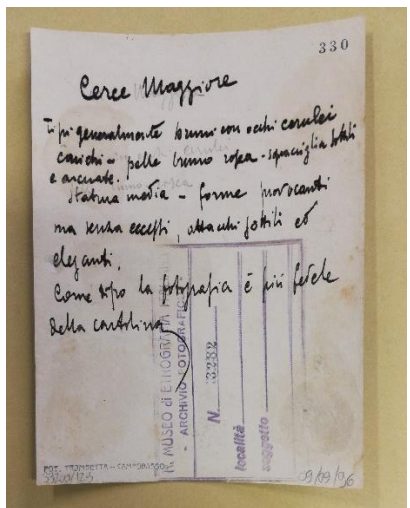 330
Cerce Maggiore
Tipi generalmente bruni con occhi cerulei
carichi - pelle bruno rosea - sopracciglia sottili
e arcuate.
Statura media - forme provocanti
ma senza eccessi, attacchi sottili ed
eleganti.
Come tipo la fotografia è più fedele
della cartolina
R. MUSEO di ETNOGRAFIA
- ARCHIVIO FOTOGRAFICO
N. 3282
località
soggetto
FOT. TROMBETTA - CAMPOBASSO
09/09/96